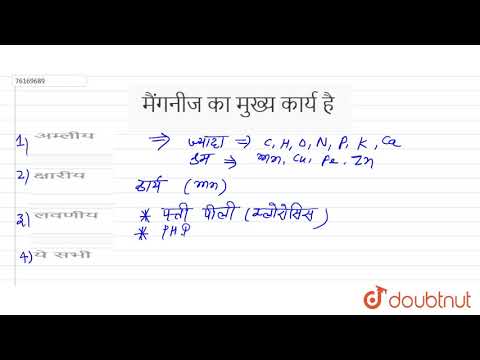 76169689
मैंगनीज का मुख्य कार्य है
1) अम्लीय
⇒ ज्यादा ⇒ C, H, O, N, P, K, Ca
कम ⇒ Mn, Cu, Fe, Zn
2) क्षारीय
कार्य (mn)
3) लवणीय
* पत्ती पीली (क्लोरोसिस)
* PHP
4) ये सभी
doubtnut